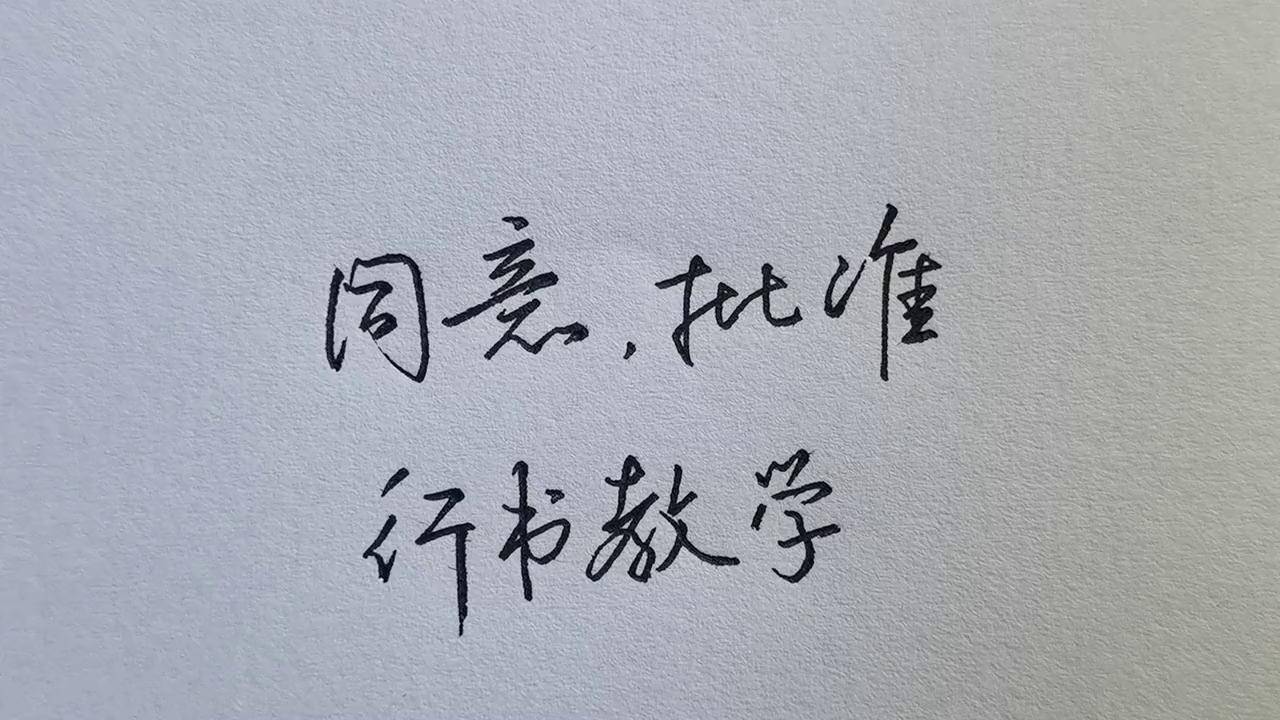 同意，批准
行书教学